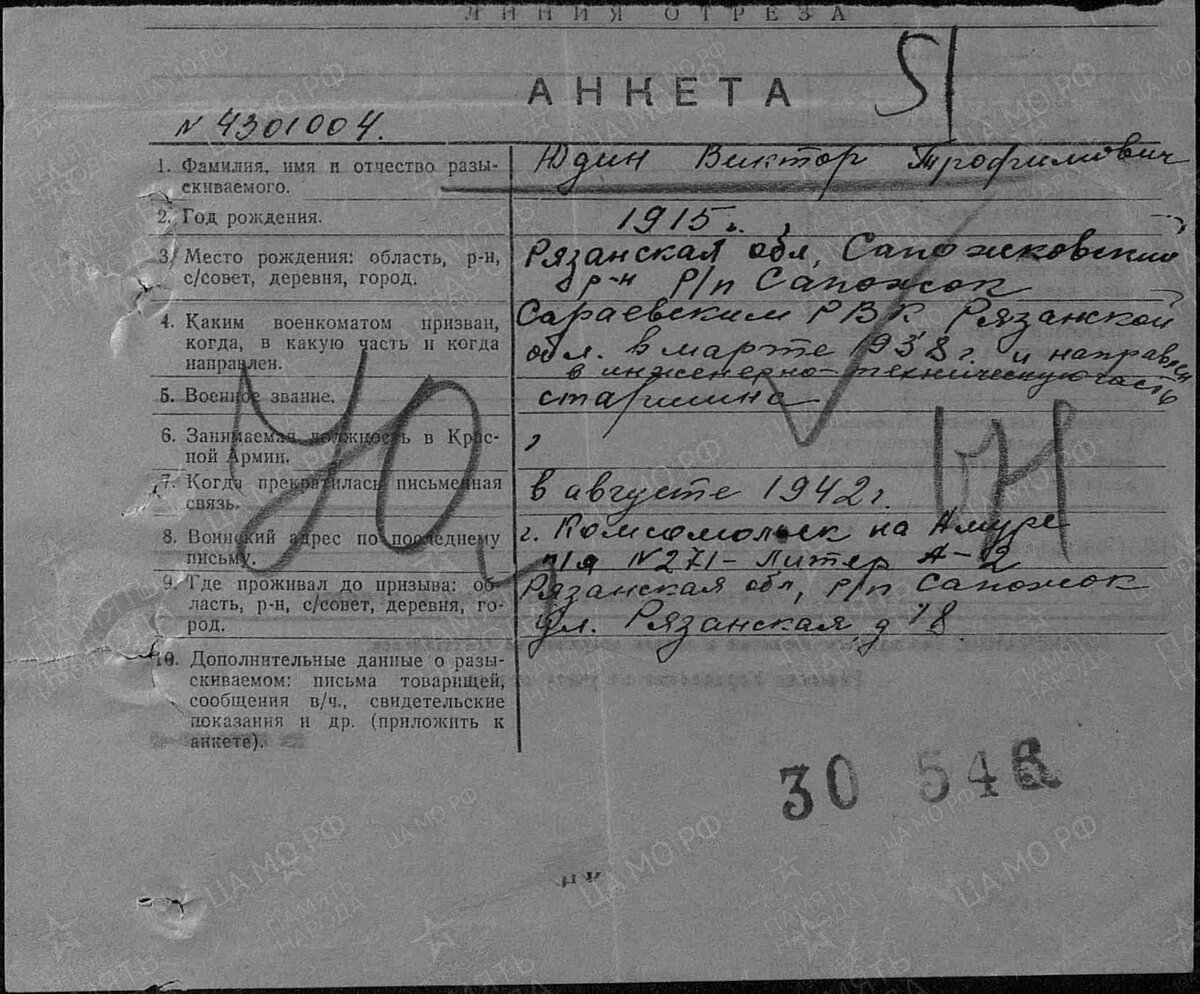 ЛИНИЯ ОТРЕЗА
51
АНКЕТА
N 4301004.
1. Фамилия, имя и отчество разы-
скиваемого.
Юдин Виктор Трофимович
2. Год рождения.
1915г.
3. Место рождения: область, р-н,
с/совет, деревня, город.
Рязанская обл, Сапожковский
р-н Р/п Сапожок
4. Каким военкоматом призван,
когда, в какую часть и когда
направлен.
Сараевским РВК Рязанской
обл. в марте 1938г. и направлен
в инженерно-техническую часть
5. Военное звание.
старшина
6. Занимаемая должность в Крас-
ной Армии.
?
7. Когда прекратилась письменная
связь.
в августе 1942г.
8. Воинский адрес по последнему
письму.
г. Комсомольск на Амуре
п/я N271- Литер А-2
9. Где проживал до призыва: об-
ласть, р-н, с/совет, деревня, го-
род.
Рязанская обл, р/п Сапожок
ул. Рязанская, д 78
10. Дополнительные данные о разы-
скиваемом: письма товарищей,
сообщения в/ч., свидетельские
показания и др. (приложить к
анкете).
Ю
30 546
ЦА МО РФ
ПАМЯТЬ
НАРОДА